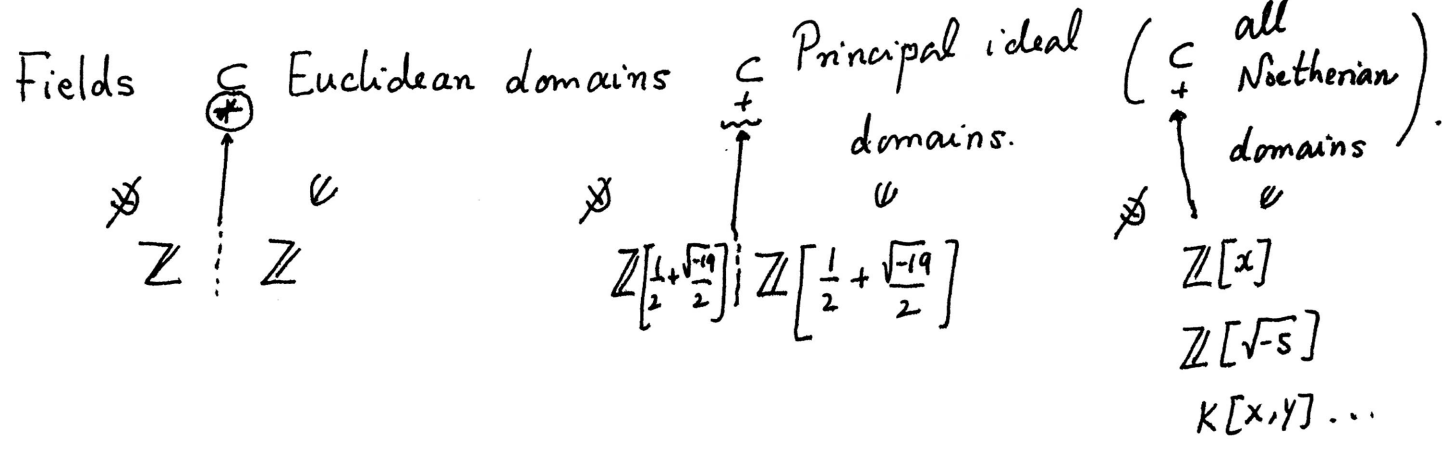 Fields ⊊ Euclidean domains ⊊ Principal ideal domains. ( ⊊ all Noetherian domains ).
∌ ∈ ∌ ∈ ∌ ∈
ℤ ℤ ℤ[1/2 + √-19/2] ℤ[1/2 + √-19/2] ℤ[x]
ℤ[√-5]
K[x,y] ...